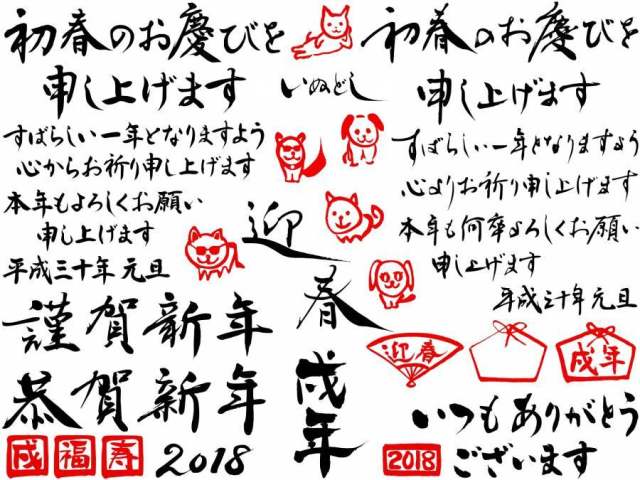 初春のお慶びを
申し上げます
すばらしい一年となりますよう
心からお祈り申し上げます
本年もよろしくお願い
申し上げます
平成三十年 元旦
謹賀新年
恭賀新年
戌 福 寿 2018
いぬどし
迎
春
戌年
初春のお慶びを
申し上げます
すばらしい一年となりますよう
心よりお祈り申し上げます
本年も何卒よろしくお願い
申し上げます
平成三十年 元旦
迎春
戌年
いつもありがとう
2018 ございます